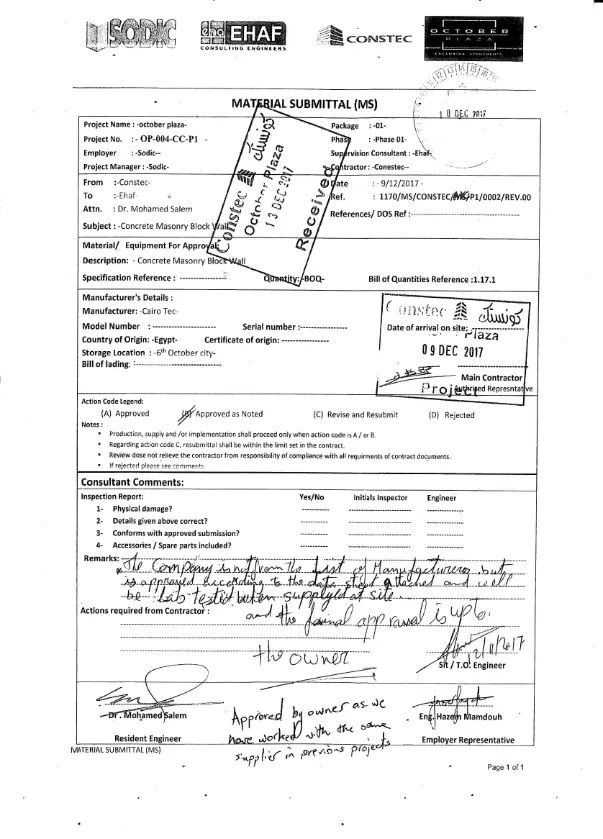 SODIC
ehaf EHAF
CONSULTING ENGINEERS
CONSTEC
OCTOBER
PLAZA
10 DEC 2017
MATERIAL SUBMITTAL (MS)
Project Name : -october plaza-
Package : -01-
Project No. : - OP-004-CC-P1 -
Phase : -Phase 01-
Employer : -Sodic--
Supervision Consultant : -Ehaf-
Project Manager : -Sodic-
Contractor: -Conestec--
From :-Constec-
Date : - 9/12/2017 -
To :-Ehaf-
Ref. : 1170/MS/CONSTEC/ /P1/0002/REV.00
Attn. : Dr. Mohamed Salem
References/ DOS Ref :----------------------
Subject : -Concrete Masonry Block Wall
Constec كونستك
October Plaza
13 DEC 2017
Received
Material/ Equipment For Approval:
Description: - Concrete Masonry Block Wall
Specification Reference : ---------------
Quantity:-BOQ-
Bill of Quantities Reference :1.17.1
Manufacturer's Details :
Manufacturer: -Cairo Tec-
Model Number : --------------------
Serial number :---------------
Country of Origin: -Egypt-
Certificate of origin: ---------------
Storage Location : -6th October city-
Bill of lading: ---------------------------
Constec كونستك
Date of arrival on site:
Plaza
09 DEC 2017
Main Contractor
Project
Authorised Represntative
Action Code Legend:
(A) Approved
(B) Approved as Noted
(C) Revise and Resubmit
(D) Rejected
Notes :
• Production, supply and /or implementation shall proceed only when action code is A / or B.
• Regarding action code C, resubmittal shall be within the limit set in the contract.
• Review dose not relieve the contractor from responsibility of compliance with all requirments of contract documents.
• If rejected please see comments.
Consultant Comments:
Inspection Report:
Yes/No
Initials Inspector
Engineer
1- Physical damage?
2- Details given above correct?
3- Conforms with approved submission?
4- Accessories / Spare parts included?
Remarks: * The Company is not from the List of Manufactureres but
is approved according to the data sheet attached and will
be Lab tested when supplyed at site.
Actions required from Contractor :
and the fainal appraval is upto
the owner
12/11/2017
Sit / T.O. Engineer
Dr. Mohamed Salem
Resident Engineer
Approved by owner as we
have worked with the same
supplier in previous projects
Eng. Hazem Mamdouh
Employer Representative
MATERIAL SUBMITTAL (MS)
Page 1 of 1